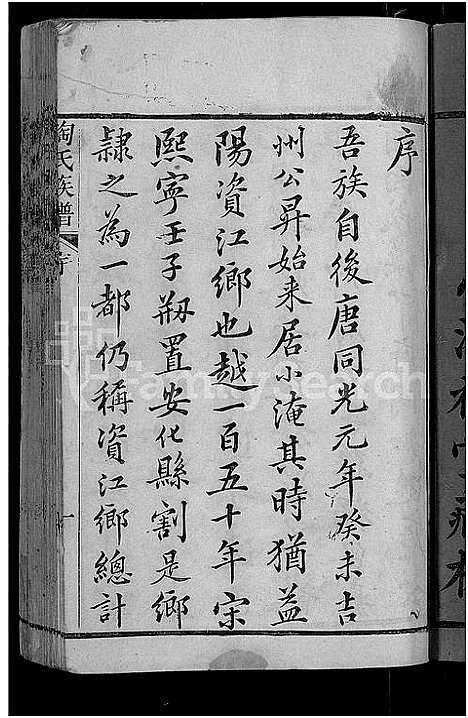 序
吾族自後唐同光元年癸未吉
州公昇始来居小淹其時猶益
陽資江鄉也越一百五十年宋
熙寧壬子剏置安化縣割是鄉
隷之為一都仍稱資江鄉總計
陶氏族譜
序
一
FamilySearch